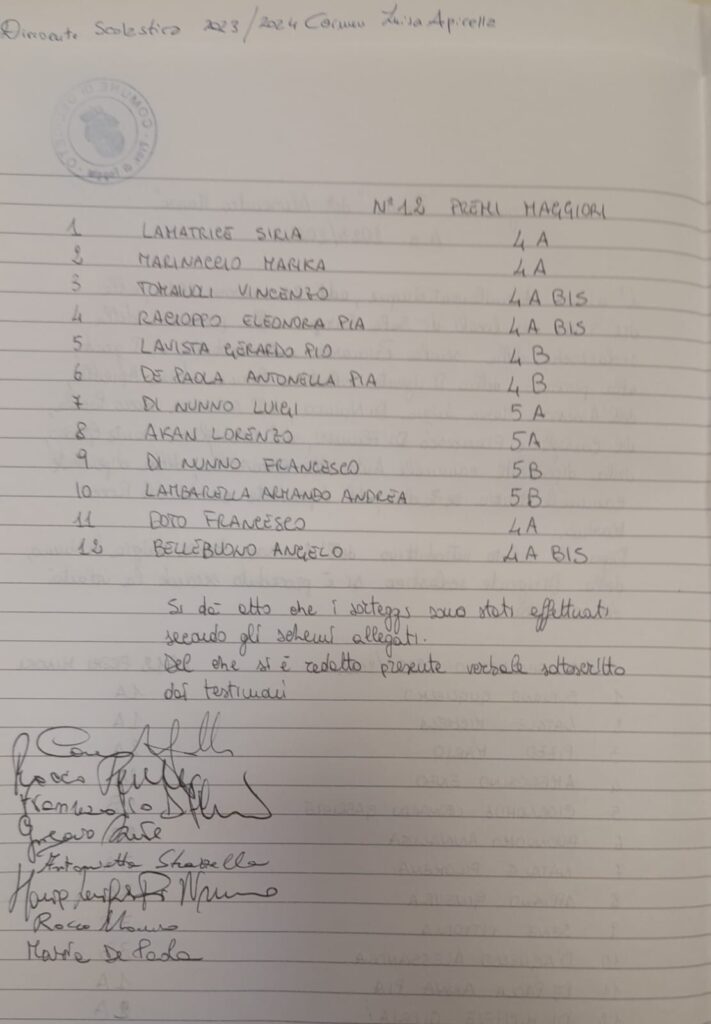 Dirigente Scolastica 2023/2024 Carmen Luisa Apicella
N° 12 PREMI MAGGIORI
1 LAMATRICE SIRIA 4 A
2 MARINACCIO MARIKA 4 A
3 TOMAIUOLI VINCENZO 4 A BIS
4 RACIOPPO ELEONORA PIA 4 A BIS
5 LAVISTA GERARDO PIO 4 B
6 DE PAOLA ANTONELLA PIA 4 B
7 DI NUNNO LUIGI 5 A
8 AKAN LORENZO 5A
9 DI NUNNO FRANCESCO 5B
10 LAMBARELLA ARMANDO ANDREA 5B
11 DOTO FRANCESCO 4A
12 BELLEBUONO ANGELO 4A BIS
Si dà atto che i sorteggi sono stati effettuati
secondo gli schemi allegati.
Del che si è redatto presente verbale sottoscritto
dai testimoni
Rocco
Antonietta
Nunno
Rocco
Maria De Paola